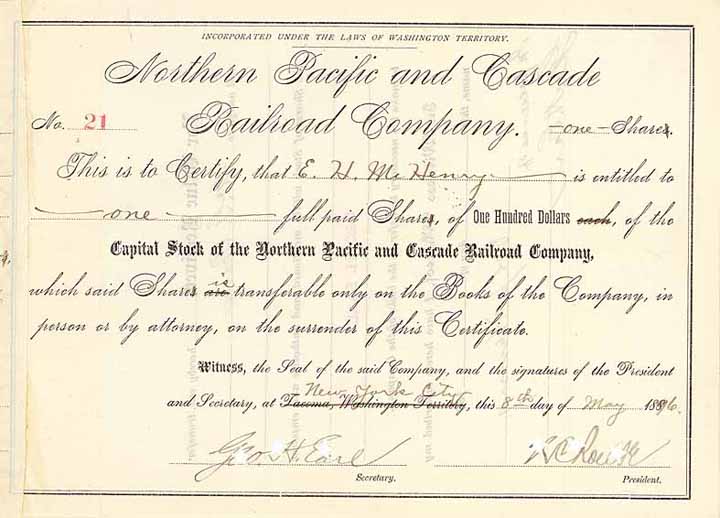 INCORPORATED UNDER THE LAWS OF WASHINGTON TERRITORY.
Northern Pacific and Cascade
No. 21 Railroad Company. -one- Shares.
This is to Certify, that E. H. McHenry is entitled to
one full paid Shares, of One Hundred Dollars each, of the
Capital Stock of the Northern Pacific and Cascade Railroad Company,
which said Shares are is transferable only on the Books of the Company, in
person or by attorney, on the surrender of this Certificate.
Witness, the Seal of the said Company, and the signatures of the President
New York City
and Secretary, at Tacoma, Washington Territory, this 8th day of May 1896.
Geo. H. Earl
Secretary. President.